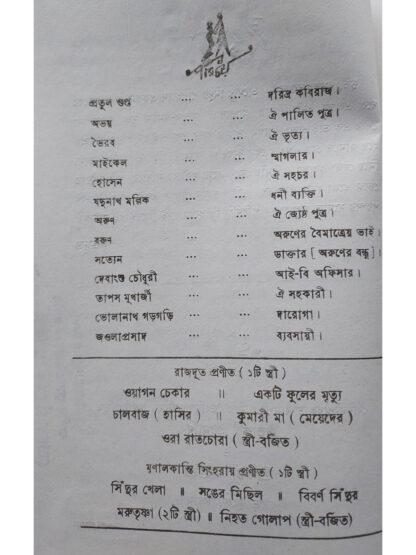 পরিচয়
প্রতুল গুপ্ত ... ... দরিদ্র কবিরাজ।
অভয় ... ... ঐ পালিত পুত্র।
ভৈরব ... ... ঐ ভৃত্য।
মাইকেল ... ... স্মাগলার।
হোসেন ... ... ঐ সহচর।
যদুনাথ মল্লিক ... ... ধনী ব্যক্তি।
অরুণ ... ... ঐ জ্যেষ্ঠ পুত্র।
বরুণ ... ... অরুণের বৈমাত্রেয় ভাই।
সত্যেন ... ... ডাক্তার [ অরুণের বন্ধু ]।
দেবাংশু চৌধুরী ... ... আই-বি অফিসার।
তাপস মুখার্জী ... ... ঐ সহকারী।
ভোলানাথ গড়গড়ি ... ... দারোগা।
জওলাপ্রসাদ ... ... ব্যবসায়ী।
রাজদূত প্রণীত ( ১টি স্ত্রী )
ওয়াগন চেকার ॥ একটি ফুলের মৃত্যু
চালবাজ ( হাসির ) ॥ কুমারী মা ( মেয়েদের )
ওরা রাতচোরা ( স্ত্রী-বর্জিত )
মৃণালকান্তি সিংহরায় প্রণীত ( ১টি স্ত্রী )
সিঁদুর খেলা ॥ সঙের মিছিল ॥ বিবর্ণ সিঁদুর
মরুতৃষ্ণা ( ২টি স্ত্রী ) ॥ নিহত গোলাপ ( স্ত্রী-বর্জিত )